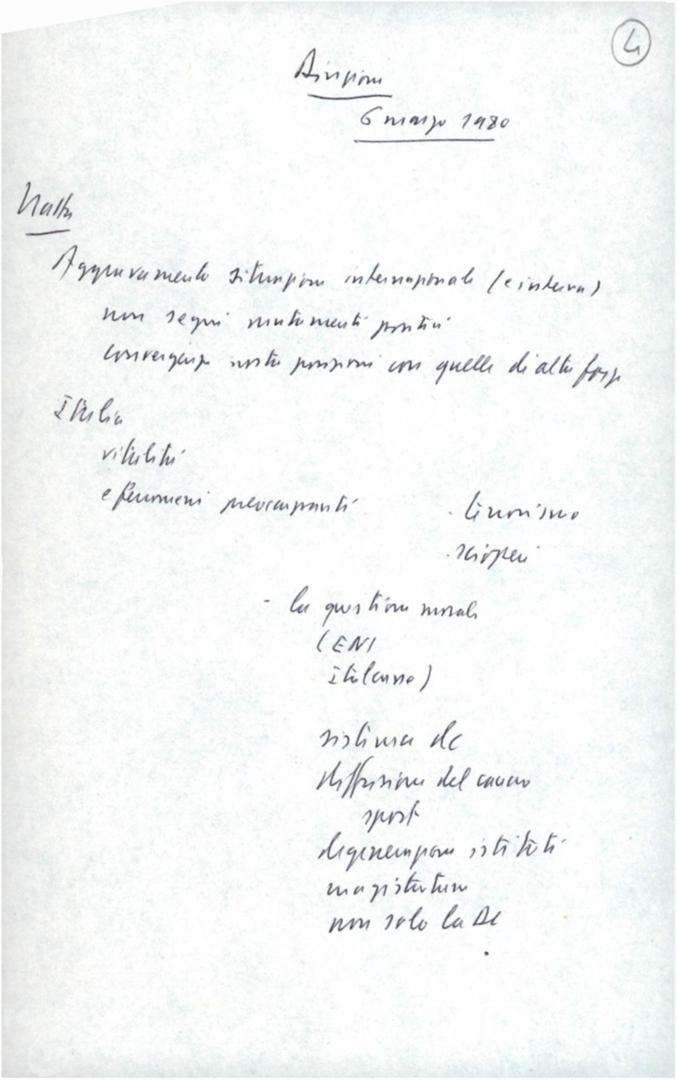 4
Direzione
6 marzo 1980
Natta
Aggravamento situazione internazionale (e interna)
non segni mutamenti positivi
convergenze nostre posizioni con quelle di altre forze
Italia
vitalità
e fenomeni preoccupanti
. terrorismo
. scioperi
- la questione morale
(ENI
Italcasse)
sistema dc
diffusione del cancro
sport
degenerazione istituti
magistratura
non solo la DC